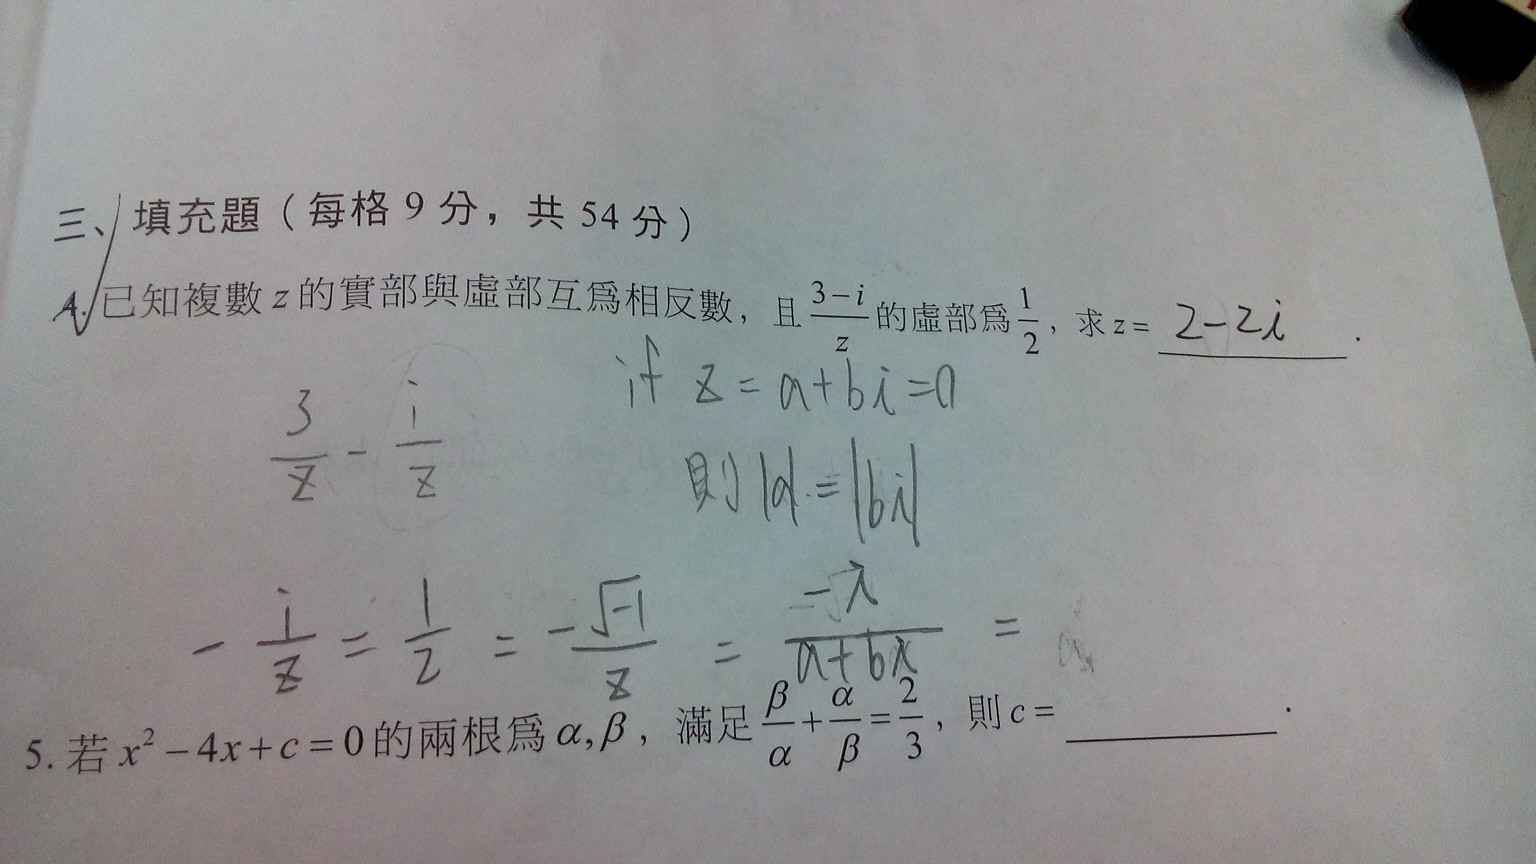 三、填充題（每格 9 分，共 54 分）
4. 已知複數 z 的實部與虛部互爲相反數，且 \frac{3-i}{z} 的虛部爲 \frac{1}{2}，求 z = 2-2i .
\frac{3}{z} - \frac{i}{z}
if z = a+bi = 0
則 |a| = |bi|
- \frac{i}{z} = \frac{1}{2} = \frac{-\sqrt{-1}}{z} = \frac{-i}{a+bi} =
5. 若 x² - 4x + c = 0 的兩根爲 α, β，滿足 \frac{β}{α} + \frac{α}{β} = \frac{2}{3}，則 c = .